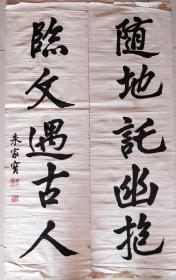 随地託幽抱
臨文遇古人
朱家寶